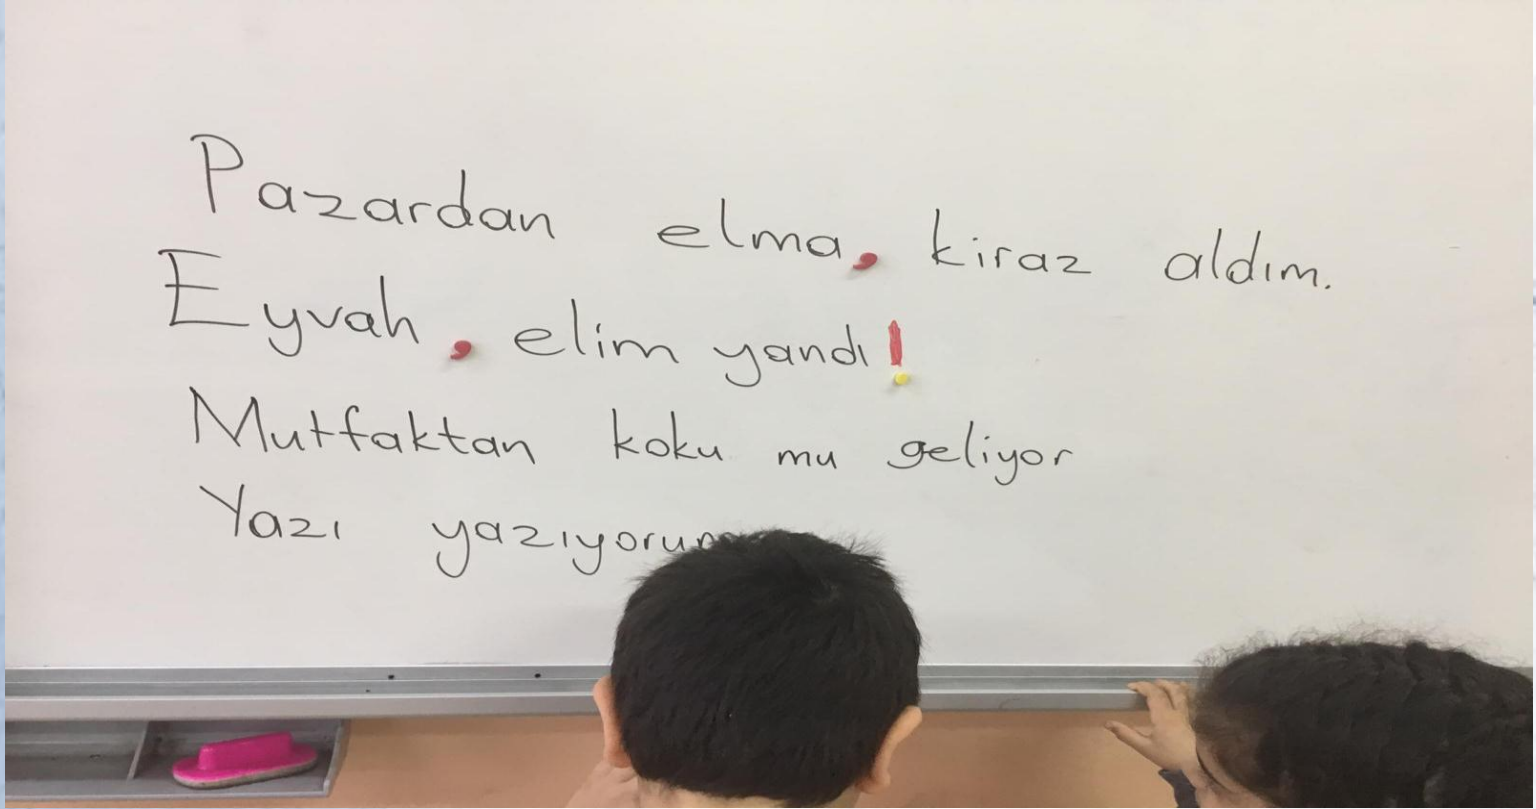 Pazardan elma, kiraz aldım.
Eyvah, elim yandı!
Mutfaktan koku mu geliyor
Yazı